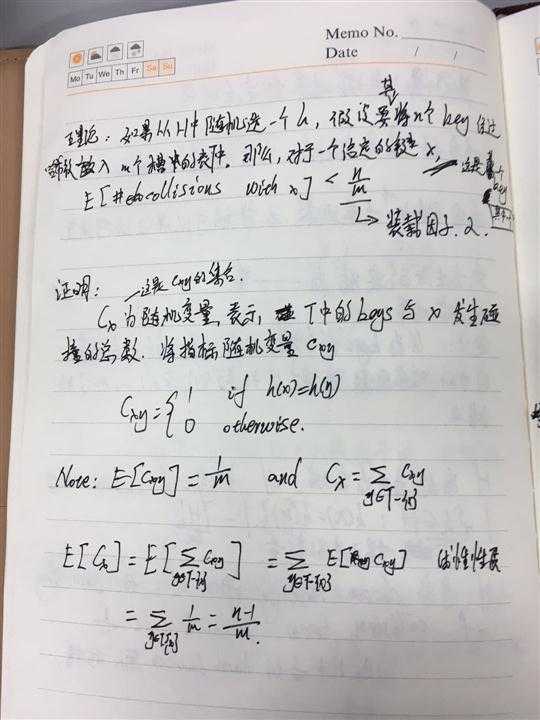 Memo No.
Date / /
Mo Tu We Th Fr Sa Su
其
理论：如果从H中随机选一个h，假设要将n个key
放入m个槽中的表T中。那么，对于一个给定的键x，
这是
key
E[#collisions with x] < n/m
→ 装载因子 α.
证明：
这是Cxy的集合.
Cx为随机变量，表示，T中的keys与x发生碰
撞的总数. 将指标随机变量Cxy
Cxy = { 1 if h(x)=h(y)
0 otherwise.
Note: E[Cxy] = 1/m and Cx = ∑ Cxy
y∈T-{x}
E[Cx] = E[∑ Cxy] = ∑ E[Cxy] 线性性质
y∈T-{x} y∈T-{x}
= ∑ 1/m = n-1/m.